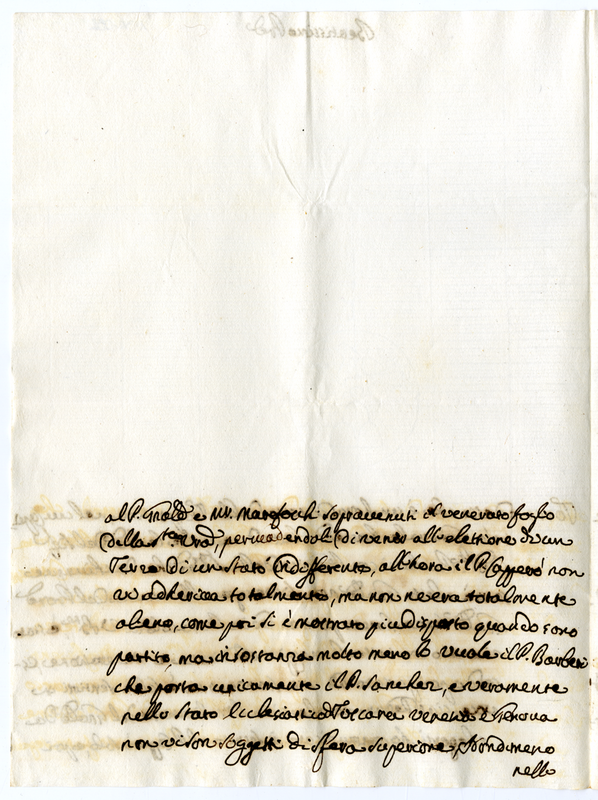 al P. Gnãle e MM. Marefoschi sopravenuti il venerato foglio
della Stã. Vrã, persuadendoli di venir all'elettione di un
Terzo di un stato indifferente, all'hora il P. non
vi adheriva totalmente, ma non ne era totalmente
alieno, come poi si è mostrato più disposto quando sono
partito, ma in sostanza molto meno lo vuole il P. Barberi
che porta unicamente il P. Sanchez, e veramente
nello Stato Ecclesiastico Toscana veneto e Genova
non vi son soggetti di sfera superiore, Nondimeno
nello